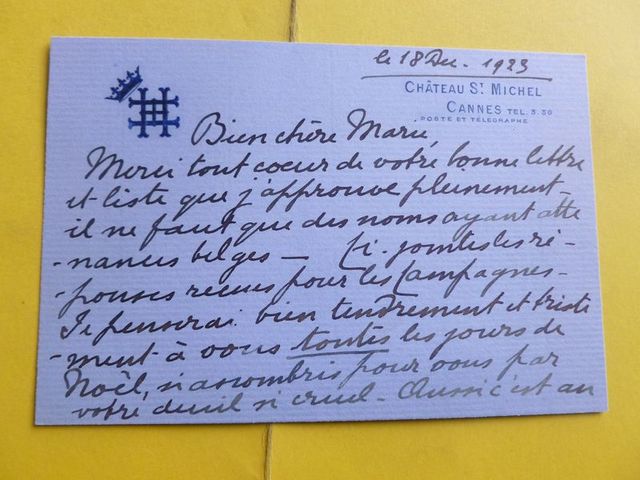 le 18 Dec. 1923
CHÂTEAU ST MICHEL
CANNES TEL. 3.30
POSTE ET TÉLÉGRAPHE
Bien chère Marie,
Merci tout coeur de votre bonne lettre
et liste que j'approuve pleinement -
il ne faut que des noms ayant atte
-nances belges — Ci-joint les ré-
-ponses recues pour les Campagnes -
Je penserai bien tendrement et triste
-ment à vous toutes les jours de
Noël, si assombris pour vous par
votre deuil si cruel - Aussi c'est au